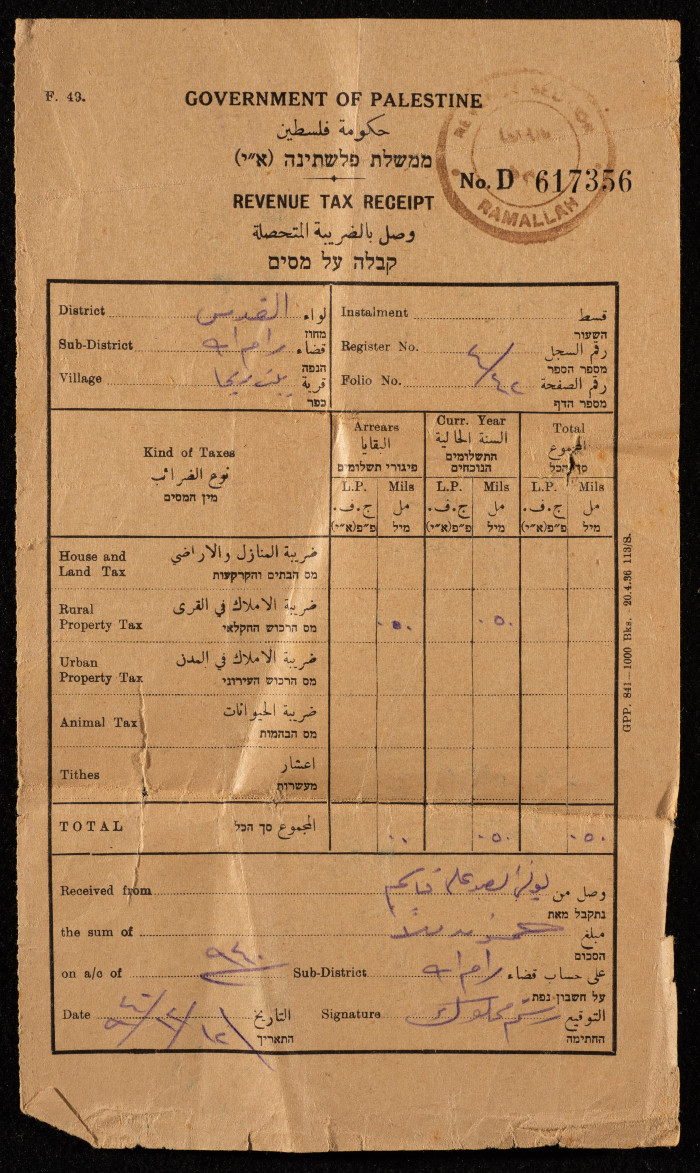 F. 49.
GOVERNMENT OF PALESTINE
حكومة فلسطين
ממשלת פלשתינה (א״י)
No. D 617356
RAMALLAH
REVENUE TAX RECEIPT
وصل بالضريبة المتحصلة
קבלה על מסים
District القدس لواء
מחוז
Sub-District رام الله قضاء
הנפה
Village قرية
כפר
Instalment قسط
השעור
Register No. رقم السجل
מספר הספר
Folio No. ٤/٤٢ رقم الصفحة
מספר הדף
Kind of Taxes
نوع الضرائب
מין המסים
Arrears
البقايا
פיגורי תשלומים
Curr. Year
السنة الحالية
התשלומים הנוכחים
Total
المجموع
סך הכל
L.P. Mils L.P. Mils L.P. Mils
ج.ف. مل ج.ف. مل ج.ف. مل
פ״פ(א״י) מיל פ״פ(א״י) מיל פ״פ(א״י) מיל
House and Land Tax ضريبة المنازل والاراضي
מס הבתים והקרקעות
Rural Property Tax ضريبة الاملاك في القرى
מס הרכוש החקלאי
٠٥٠ ٠٥٠
Urban Property Tax ضريبة الاملاك في المدن
מס הרכוש העירוני
Animal Tax ضريبة الحيوانات
מס הבהמות
Tithes اعشار
מעשרות
TOTAL المجموع סך הכל
٠٥٠ ٠٥٠
GPP. 841—1000 Bks. 20.4.36 113/S.
Received from وصل من
נתקבל מאת
the sum of مبلغ
הסכום
on a/c of ٩٤٠ Sub-District رام الله على حساب قضاء
על חשבון נפת
Date التاريخ
התאריך
Signature التوقيع
החתימה